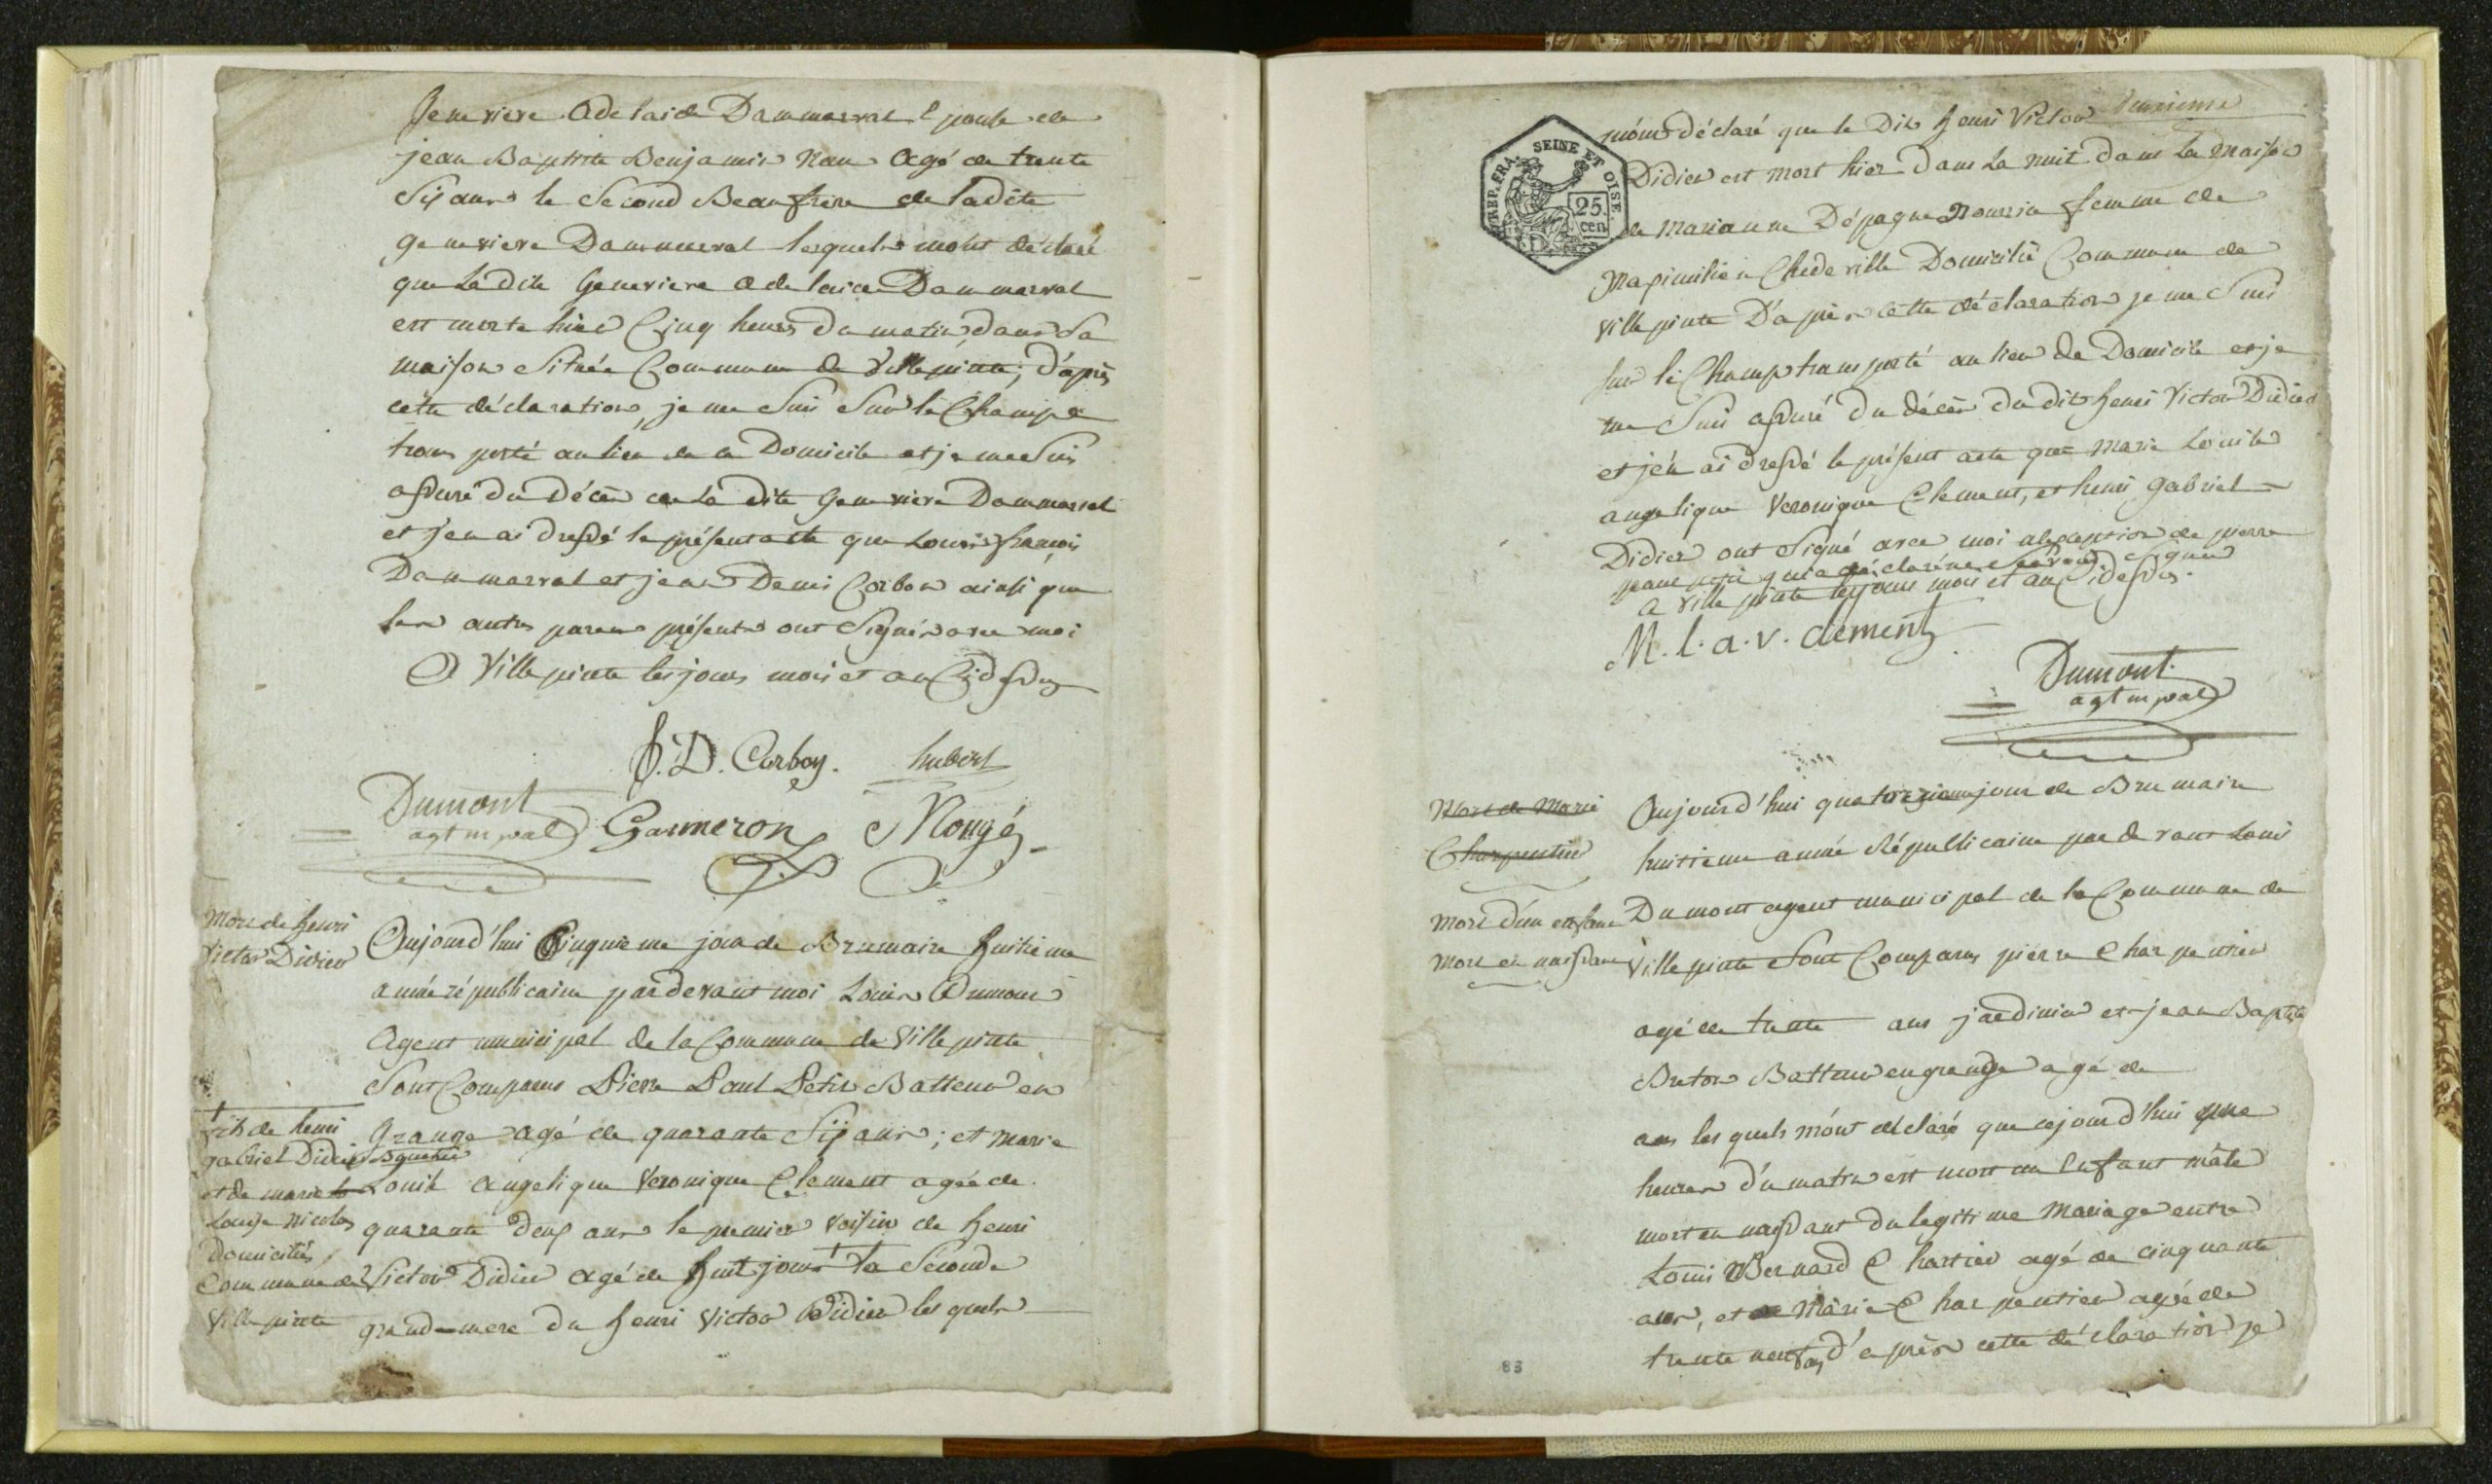 Genevieve Adelaide Dammarval Epouse de
jean Baptiste Benjamin Nau agé de trente
Six ans le Second Beaufrere de ladite
genevieve Dammarval lesquels m'ont déclaré
que Ladite Genevieve adelaide Dammarval
est morte hier Cinq heures du matin dans Sa
maison Située Commune de Villepinte; d'après
cette déclaration, je me Suis Sur le Champ
transporté au lieu de ce Domicile et je me Suis
assuré du Décès de La dite Genevieve Dammarval
et j'en ai dressé le présent acte que Louis françois
Dammarval et jean Denis Corbon ainsi que
les autres parens présents ont Signés avec moi
A Villepinte les jours mois et an Cidessus
J. D. Corboy. hubert
Dumont
agt mpal Garmeron Nougé
Mort de henri
Victor Didier
Aujourd'hui Cinquieme jour de Brumaire huitieme
année républicaine pardevant moi Louis Dumont
Agent municipal de la Commune de Villepinte
Sont Comparus Pierre Paul Petit Batteur en
Grange agé de quarante Six ans; et Marie
Louise Angelique Veronique Clement agée de
quarante deux ans le premier voisin de henri
Victor Didier agé de huit jours † la Seconde
grand-mere du henri Victor Didier lesquels
† fils de henri
gabriel Didier
et de marie
Louise Nicolas
Domiciliés
Commune de
Villepinte
REP. FRA. SEINE ET OISE.
25.
cen
m'ont déclaré que le Dit henri Victor
Didier est mort hier Dans La nuit dans La Maison
de Marianne Dépagne Nourrice femme de
Maximilien Chedeville Domicilié Commune de
Villepinte D'après cette déclaration je me Suis
Sur le Champ transporté au lieu de Domicile et je
me Suis assuré du décès du dit henri Victor Didier
et j'en ai dressé le présent acte que Marie Louise
angelique Veronique Clement, et henri gabriel
Didier ont Signé avec moi a l'exception de pierre
paul petit qui a déclaré ne Savoir Signer
a villepinte les jours mois et an Cidessus.
M. l. a. v. clement
Dumont
agt mpal
Mort de Marie
Charpentier
Mort d'un enfant
Mort en naissant
Aujourd'hui quatorzieme jour de Brumaire
huitieme année Républicaine pardevant Louis
Dumont agent municipal de la Commune de
Villepinte Sont Comparus pierre Charpentier
agé de trente ans jardinier et jean Baptiste
Breton Batteur en grange agé de
ans lesquels m'ont déclaré que cejourd'hui
heures du matin est mort un Enfant mâle
mort en naissant du legitime Mariage entre
Louis Bernard Chartier agé de cinquante
ans, et Marie Charpentier agée de
trente neuf ans d'après cette déclaration je
83